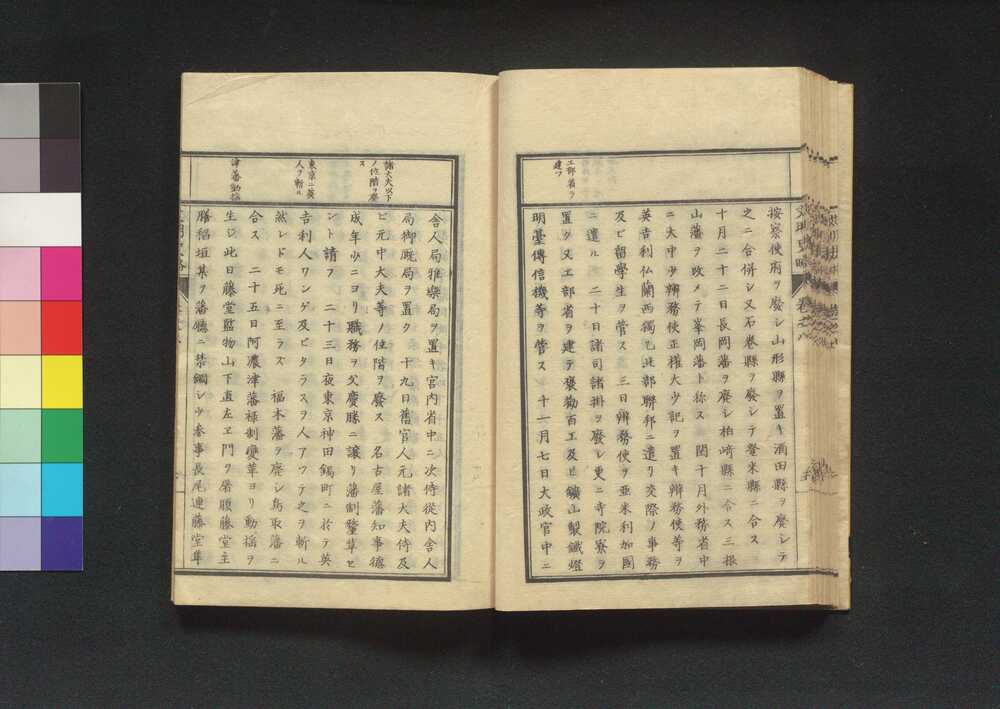 工部省ヲ
建ツ
按察使府ヲ廢シ山形縣ヲ置キ酒田縣ヲ廢シテ
之ニ合併シ又石巻縣ヲ廢シテ登米縣ニ合ス
十月二十二日長岡藩ヲ廢シ柏崎縣ニ合ス三根
山藩ヲ改メテ峯岡藩ト称ス 閏十月外務省中
ニ大中少辨務使正權大少記ヲ置キ辨務使等ヲ
英吉利仏蘭西獨乙北部聯邦ニ遣リ交際ノ事務
及ビ留學生ヲ管ス 三日辨務使ヲ亜米利加國
ニ遣ル 二十日諸司諸掛ヲ廢シ更ニ寺院寮ヲ
置ク又工部省ヲ建テ褒勸百工及ヒ鑛山製鐵燈
明臺傳信機等ヲ管ス 十一月七日大政官中ニ
諸大夫以下
ノ位階ヲ廢
ス
東京ニ英
人ヲ斬ル
津藩動揺
舎人局雅樂局ヲ置キ宮内省中ニ次侍從内舎人
局御厩局ヲ置ク 十九日舊官人元諸大夫侍及
ビ元中大夫等ノ位階ヲ廢ス 名古屋藩知事德
成年少ニヨリ職務ヲ父慶勝ニ譲リ藩制釐革セ
ント請フ 二十三日夜東京神田鍋町ニ於テ英
吉利人リンゲ及ビタラスヲ人アツテ之ヲ斬ル
然レドモ死ニ至ラズ 福本藩ヲ廢シ鳥取藩ニ
合ス 二十五日阿濃津藩禄制變革ヨリ動揺ヲ
生ジ此日藤堂監物山下直左ヱ門ヲ屠腹藤堂主
膳稲垣某ヲ藩廳ニ禁錮シ少参事長尾連藤堂隼